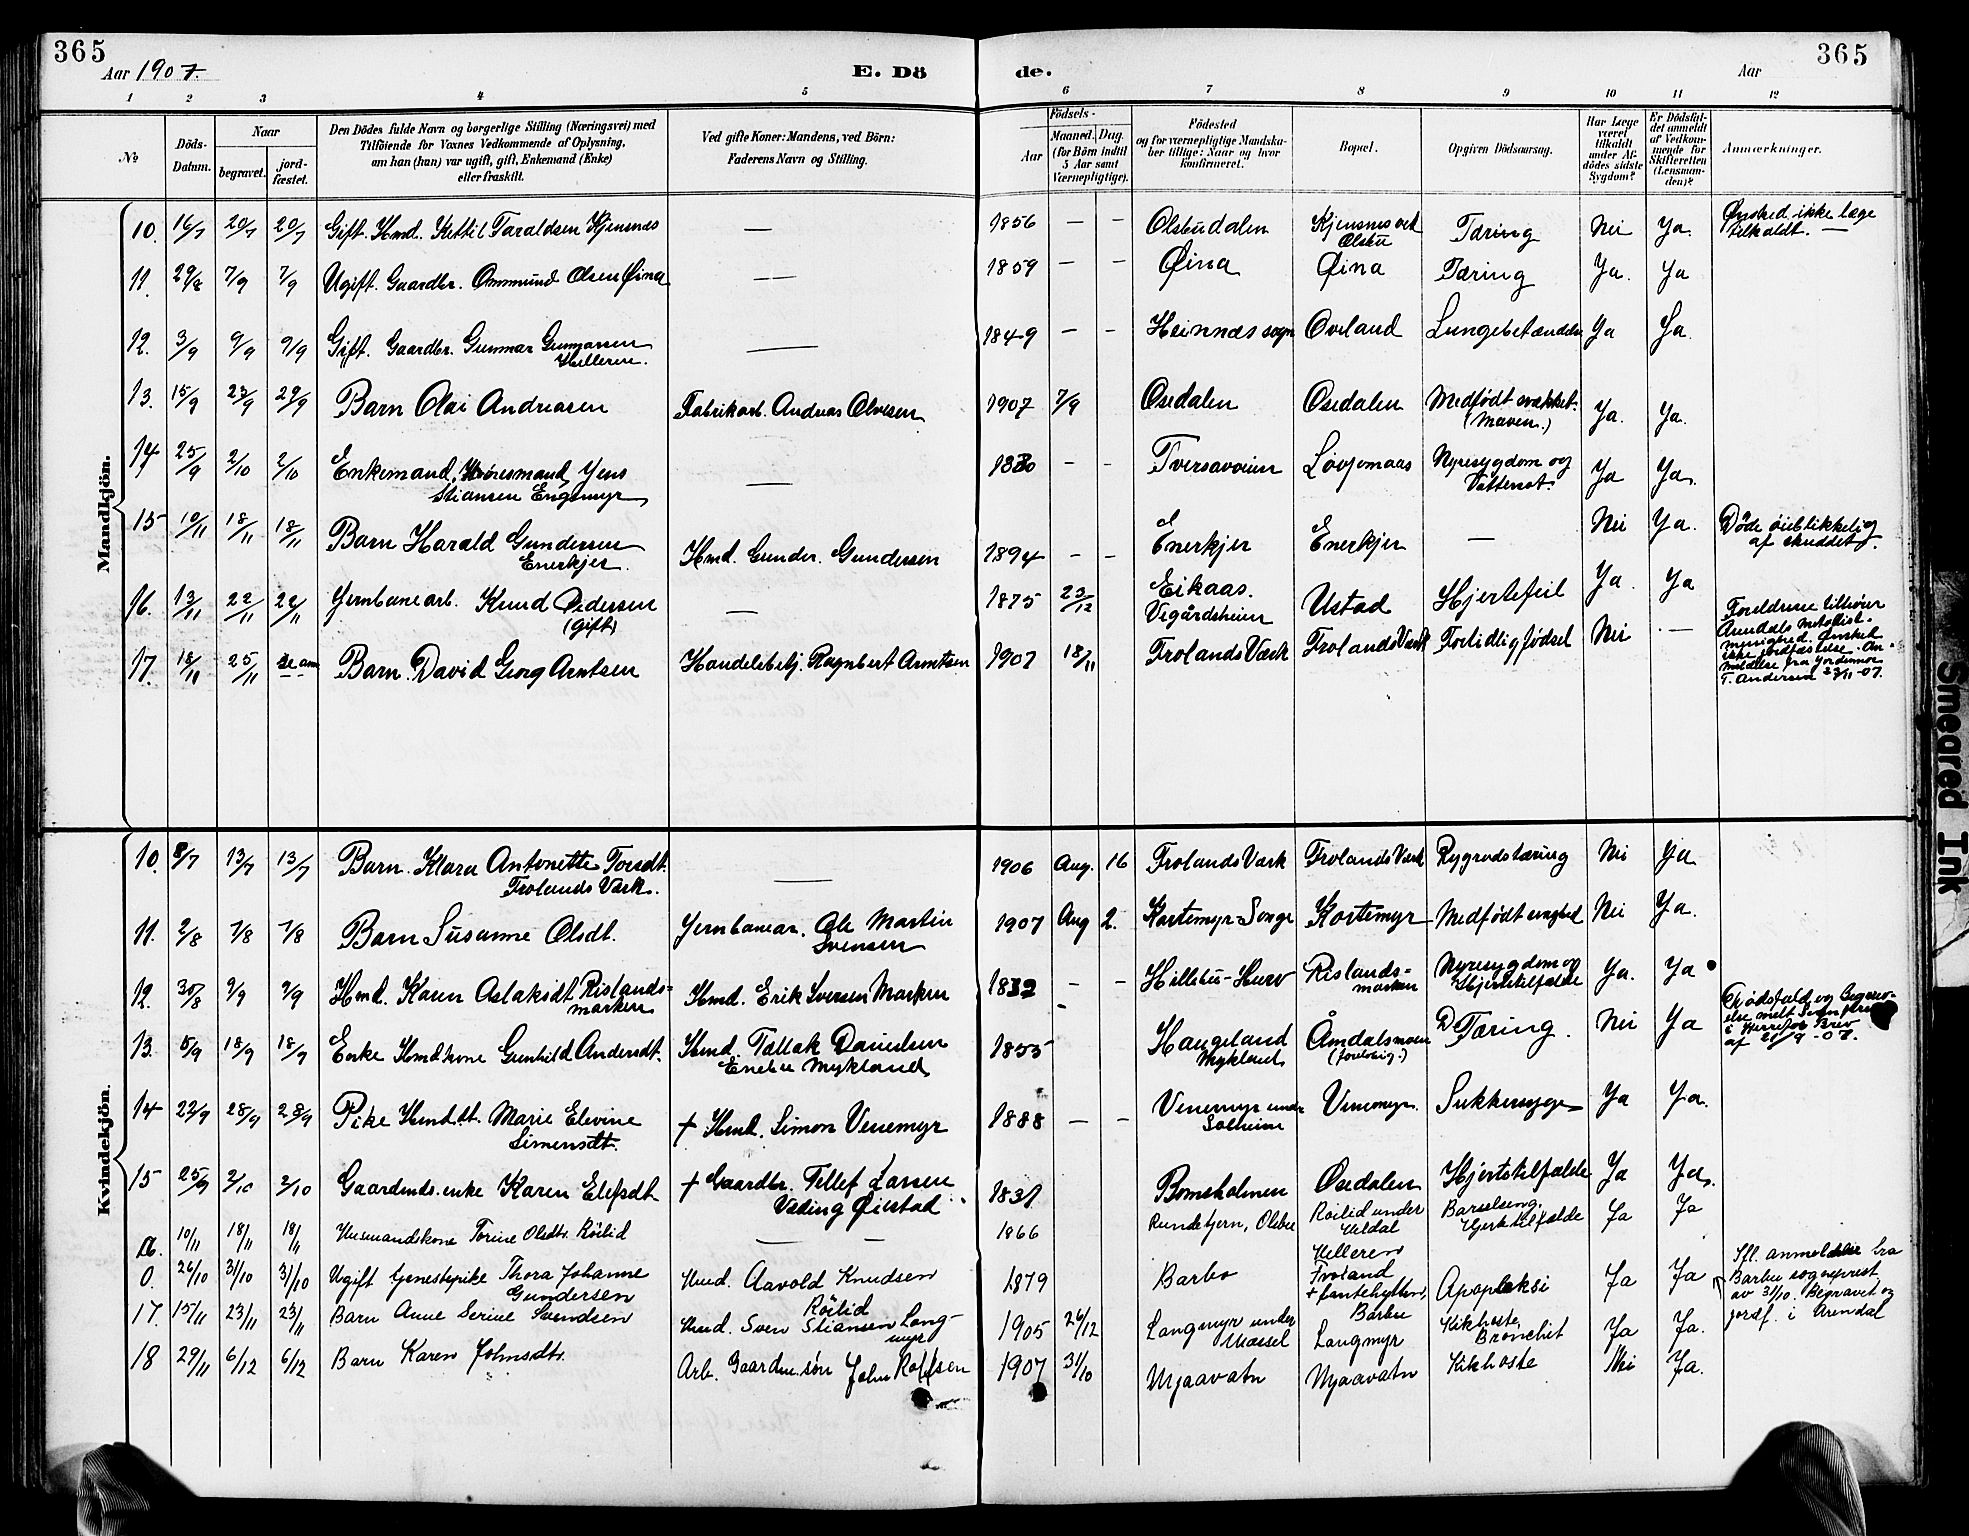 365
365
Aar 1907.
E. Dö
de.
Aar
1 2 3 4 5 6 7 8 9 10 11 12
No
Döds-Datum.
Naar
begravet.
jord-fæstet.
Den Dödes fulde Navn og borgerlige Stilling (Næringsvei) med
Tilföiende for Voxnes Vedkommende af Oplysning,
om han (hun) var ugift, gift, Enkemand (Enke)
eller fraskilt.
Ved gifte Koner: Mandens, ved Börn:
Faderens Navn og Stilling.
Födsels-
Aar
Maaned. Dag.
(for Börn indtil
5 Aar samt
Værnepligtige).
Födested
og for værnepligtige Mandska-
ber tillige: Naar og hvor
konfirmeret.
Bopæl.
Opgiven Dödsaarsag.
Har Læge
været
tilkaldt
under Af-
dödes sidste
Sygdom?
Er Dödsfal-
det anmeldt
af Vedkom-
mende for
Skifteretten
(Lensman-
den)?
Anmærkninger.
Mandkjön.
10. 16/7 20/7 20/7 Gift. Hmd. Kittil Taraldsen Kjensnes — 1856 — — Olsbudalen Kjensnes ved Olsbu Tæring Nei Ja. Ønsked ikke læge tilkaldt. —
11. 29/8 7/9 7/9 Ugift. Gaardbr. Ommund Olsen Øina — 1859 — — Øina Øina Tæring Ja. Ja
12. 3/9 9/9 9/9 Gift. Gaardbr. Gunnar Gunnarsen Hilleren. — 1849 — — Heinnæs sogn Oveland Lungebetændelse Ja Ja.
13. 15/9 23/9 29/9 Barn Olai Andreasen Fabrikarb. Andreas Olvesen 1907 7/9 Osedalen Osedalen Medfödt svækket. (Maven.) Ja. Ja.
14 25/9 2/10 2/10 Enkemand, Jens Stiansen Engemyr — 1830 — — Tversavoien Nyresygdom og Vattersot. Ja Ja.
15 10/11 18/11 18/11 Barn Harald Gundersen Enerkjer. Hmd. Gunder. Gundersen 1894 — — Enerkjer Enerkjer — Nei Ja. Døde øieblikkelig af skuddet.
16. 13/11 22/11 22/11 Jernbanearb. Knud Pedersen (Gift) — 1875 23/12 Eikaas. Vegårdsheien Ustad Hjertefeil Ja. Ja
17. 18/11 25/11 se anm Barn. David Georg Arntsen Handelsbetj. Raynbert Arntsen 1907 18/11 Frolands Værk Frolands Værk Fortidlig födsel Nei — Foreldrene tilhörer
Arendals Metodist-
menighed. Ønsket
ikke jordfæstelse. An-
meldelse fra Jordemor
T. Andersen 23/11-07.
Kvindekjön.
10. 8/7 13/7 13/7 Barn. Klara Antonette Torsdt. Frolands Værk. — 1906 Aug. 16 Frolands Værk Frolands Værk Rygradstæring Nei Ja
11. 2/8 7/8 7/8 Barn Susanne Olsdt. Jernbanear. Ole Martin Svensen 1907 Aug 2. Kortemyr-Songe Kortemyr Medfödt Nei Ja.
12. 30/8 9/9 9/9 Hmd. Karen Aslaksdt Rislands-marken Hmd. Erik Iversen Marken 1832 — — Hillebu-Hurv Rislands-marken Nyresygdom og Hjertetilfælde Ja. Ja
13. 5/9 18/9 18/9 Enke Hmdkone Gunhild Andersdt. Hmd. Tallak Danielsen Enebu Mykland 1855 Haugeland Mykland Åmdalsmoen (foreløbig.) Tæring. Nei Ja Dödsfald og begrav-
else melt
i Herrefos Brev
af 21/9 -07.
14 22/9 28/9 28/9 Pike Hmd.dt. Marie Elevine Simensdt. + Hmd. Simon Venemyr 1888 — — Venemyr under Solheim Venemyr. Sukkersyge Ja Ja.
15 25/9 2/10 2/10 Gaardmds. enke Karen Elefsdt + Gaardbr. Tellef Larsen Veding Øiestad 1831 Bomsholmen Osedalen Hjertetilfælde Ja Ja.
16. 10/11 18/11 18/11 Husmandskone Torine Olsdtr. Röilid — — 1866 Rundetjern, Olsbu Röilid under Heldal Barselseng. Hjertetilfælde Ja Ja
0. 26/10 31/10 31/10 Ugift tjenestepike Thora Johanne Gundersen Hmd. Aavold Knudsen Röilid 1879 Barbo Helleren Froland + fantehytten, Barbu Apopleksi Ja Ja Ifl. anmeldelse fra
Barbu sogneprest
av 31/10. Begravet og
jordf. i Arendal
17. 15/11 23/11 23/11 Barn Anne Serine Svendsen Hmd. Sven Stiansen Lang-myr 1905 26/12 Langmyr under Mæssel Langmyr Kikhoste, Bronchit Ja Ja.
18 29/11 6/12 6/12 Barn Karen Johnsdtr. Arb. Gaardm. søn John Rolfsen 1907 31/10 Mjaavatn Mjaavatn Kikhoste Nei Ja.
Smeared Ink